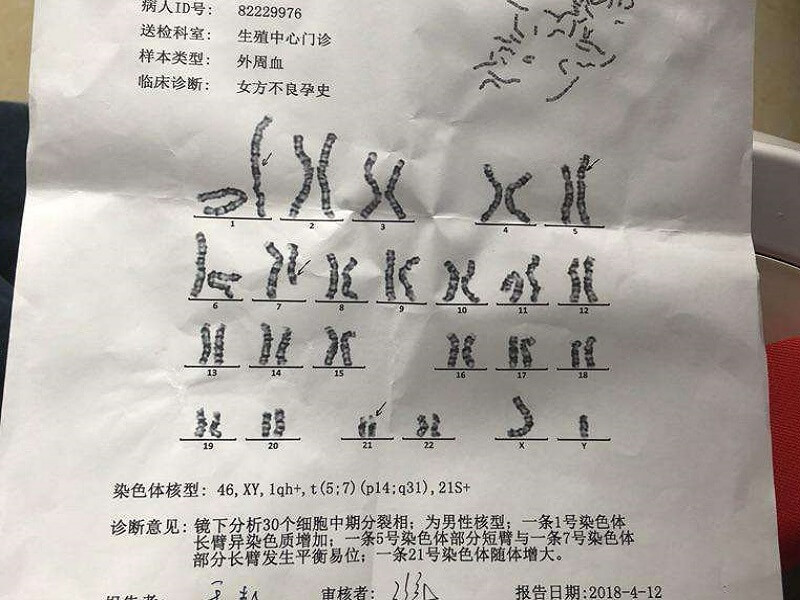 病人ID号: 82229976
送检科室: 生殖中心门诊
样本类型: 外周血
临床诊断: 女方不良孕史
1 2 3 4 5
6 7 8 9 10 11 12
13 14 15 16 17 18
19 20 21 22 X Y
染色体核型: 46,XY,1qh+,t(5;7)(p14;q31),21S+
诊断意见: 镜下分析30个细胞中期分裂相; 为男性核型; 一条1号染色体
长臂异染色质增加; 一条5号染色体部分短臂与一条7号染色体
部分长臂发生平衡易位; 一条21号染色体随体增大。
报告者: 审核者: 报告日期:2018-4-12